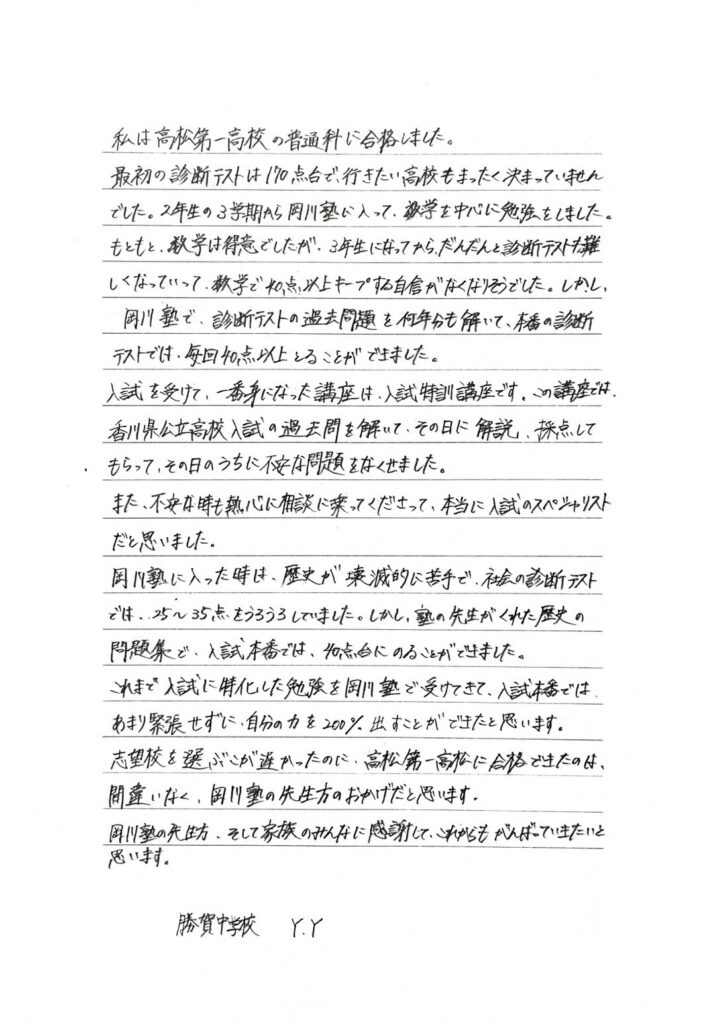 私は高松第一高校の普通科に合格しました。
最初の診断テストは170点台で、行きたい高校もまったく決まっていません
でした。2年生の3学期から岡川塾に入って、数学を中心に勉強をしました。
もともと、数学は得意でしたが、3年生になってから、だんだんと診断テストも難
しくなっていって、数学で40点以上キープする自信がなくなりそうでした。しかし、
岡川塾で、診断テストの過去問題を何年分も解いて、本番の診断
テストでは、毎回40点以上とることができました。
入試を受けて、一番身になった講座は、入試特訓講座です。この講座では、
香川県公立高校入試の過去問を解いて、その日に解説、採点して
もらって、その日のうちに不安な問題をなくせました。
また、不安な時も熱心に相談に乗ってくださって、本当に入試のスペシャリスト
だと思いました。
岡川塾に入った時は、歴史が壊滅的に苦手で、社会の診断テスト
では、25～35点をうろうろしていました。しかし、塾の先生がくれた歴史の
問題集で、入試本番では、40点台にのることができました。
これまで入試に特化した勉強を岡川塾で受けてきて、入試本番では、
あまり緊張せずに、自分の力を200%出すことができたと思います。
志望校を選ぶこが遅かったのに、高松第一高松に合格できたのは、
間違いなく、岡川塾の先生方のおかげだと思います。
岡川塾の先生方、そして家族のみんなに感謝して、これからもがんばっていきたいと
思います。
勝賀中学校 Y.Y